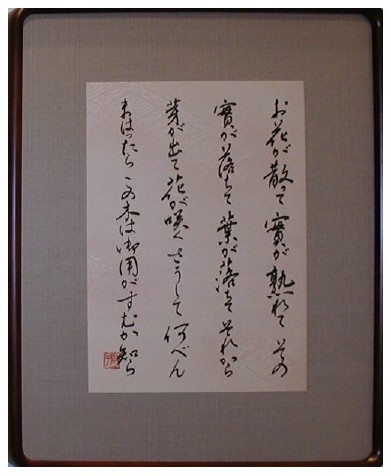 お花が散って 實が熟れて その
實が落ちて 葉が落ちて それから
芽が出て 花が咲く さうして 何べん
まはったら この木は御用がすむか知ら